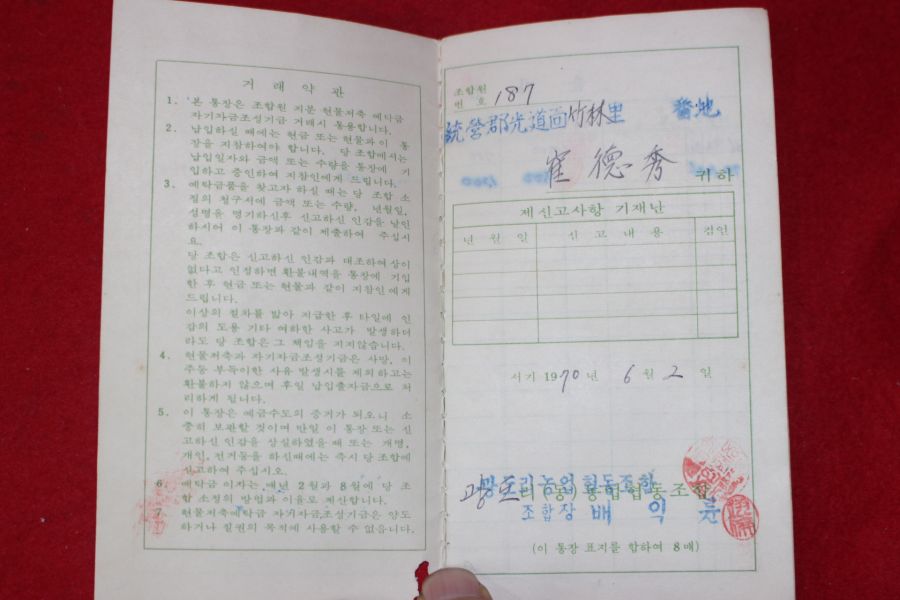 거래약관
1. 본 통장은 조합원 지분 현물저축 예탁금
자기자금조성기금 거래시 통용합니다.
2. 납입하실 때에는 현금 또는 현물과 이 통
장을 지참하여야 합니다. 당 조합에서는
납입일자와 금액 또는 수량을 통장에 기
입하고 증인하여 지참인에게 드립니다.
3. 예탁금품을 찾고자 하실 때는 당 조합 소
정의 청구서에 금액 또는 수량, 년월일,
성명을 명기하신후 신고하신 인감을 날인
하시어 이 통장과 같이 제출하여 주십시
요.
당 조합은 신고하신 인감과 대조하여 상이
없다고 인정하면 환불내역을 통장에 기입
한 후 현금 또는 현물과 같이 지참인에게
드립니다.
이상의 절차를 밟아 지급한 후 타일에 인
감의 도용 기타 여하한 사고가 발생하더
라도 당 조합은 그 책임을 지지않습니다.
4. 현물저축과 자기자금조성기금은 사망, 이
주등 부득이한 사유 발생시를 제외하고는
환불하지 않으며 후일 납입출자금으로 처
리하게 됩니다.
5. 이 통장은 예금수도의 증거가 되오니 소
중히 보관할 것이며 만일 이 통장 또는 신
고하신 인감을 상실하였을 때 또는 개명,
개인, 전거등을 하신때에는 즉시 당 조합에
신고하여 주십시오.
6. 예탁금 이자는 매년 2월과 8월에 당 조
합 소정의 방법과 이율로 계산합니다.
7. 현물저축예탁금 자기자금조성기금은 양도
하거나 질권의 목적에 사용할 수 없읍니다.
조합원
번 호 187
統營郡光道面竹林里 番地
崔德秀 귀하
제신고사항 기재난
년 월 일 신고내용 검인
서기 1970년 6월 2일
리(동)농업협동조합
조합장 배 익
(이 통장 표지를 합하여 8매)